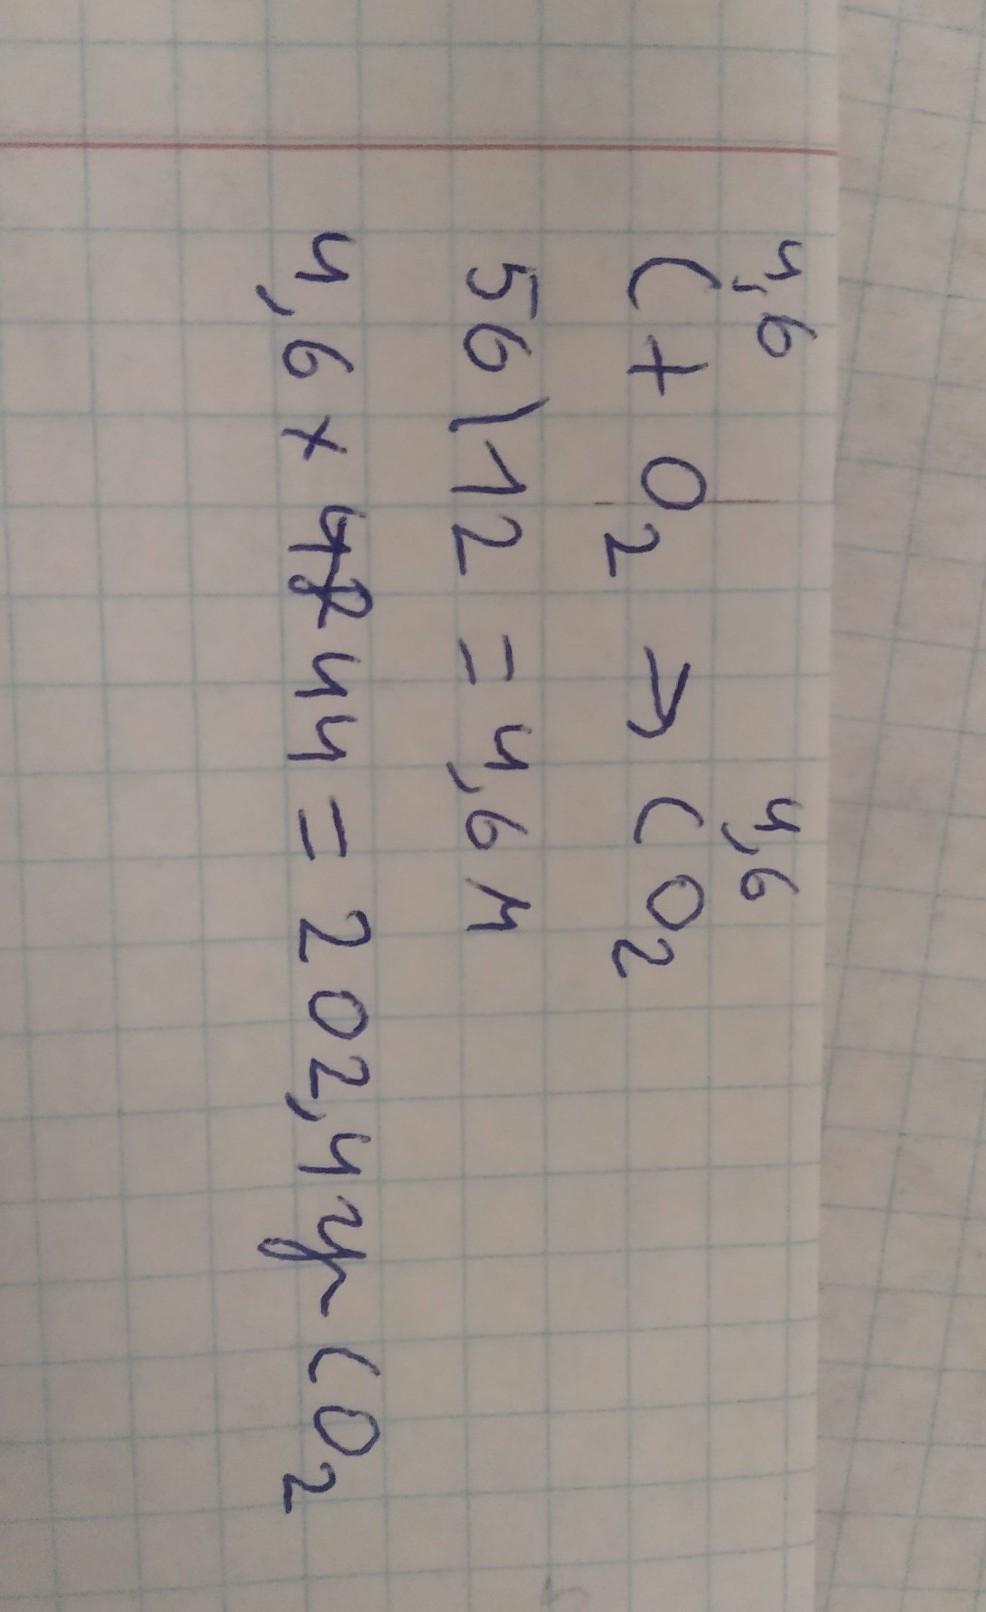 4,6 4,6
C + O2 → CO2
56 \ 12 = 4,6 м
4,6 × 44 = 202,4 гр CO2